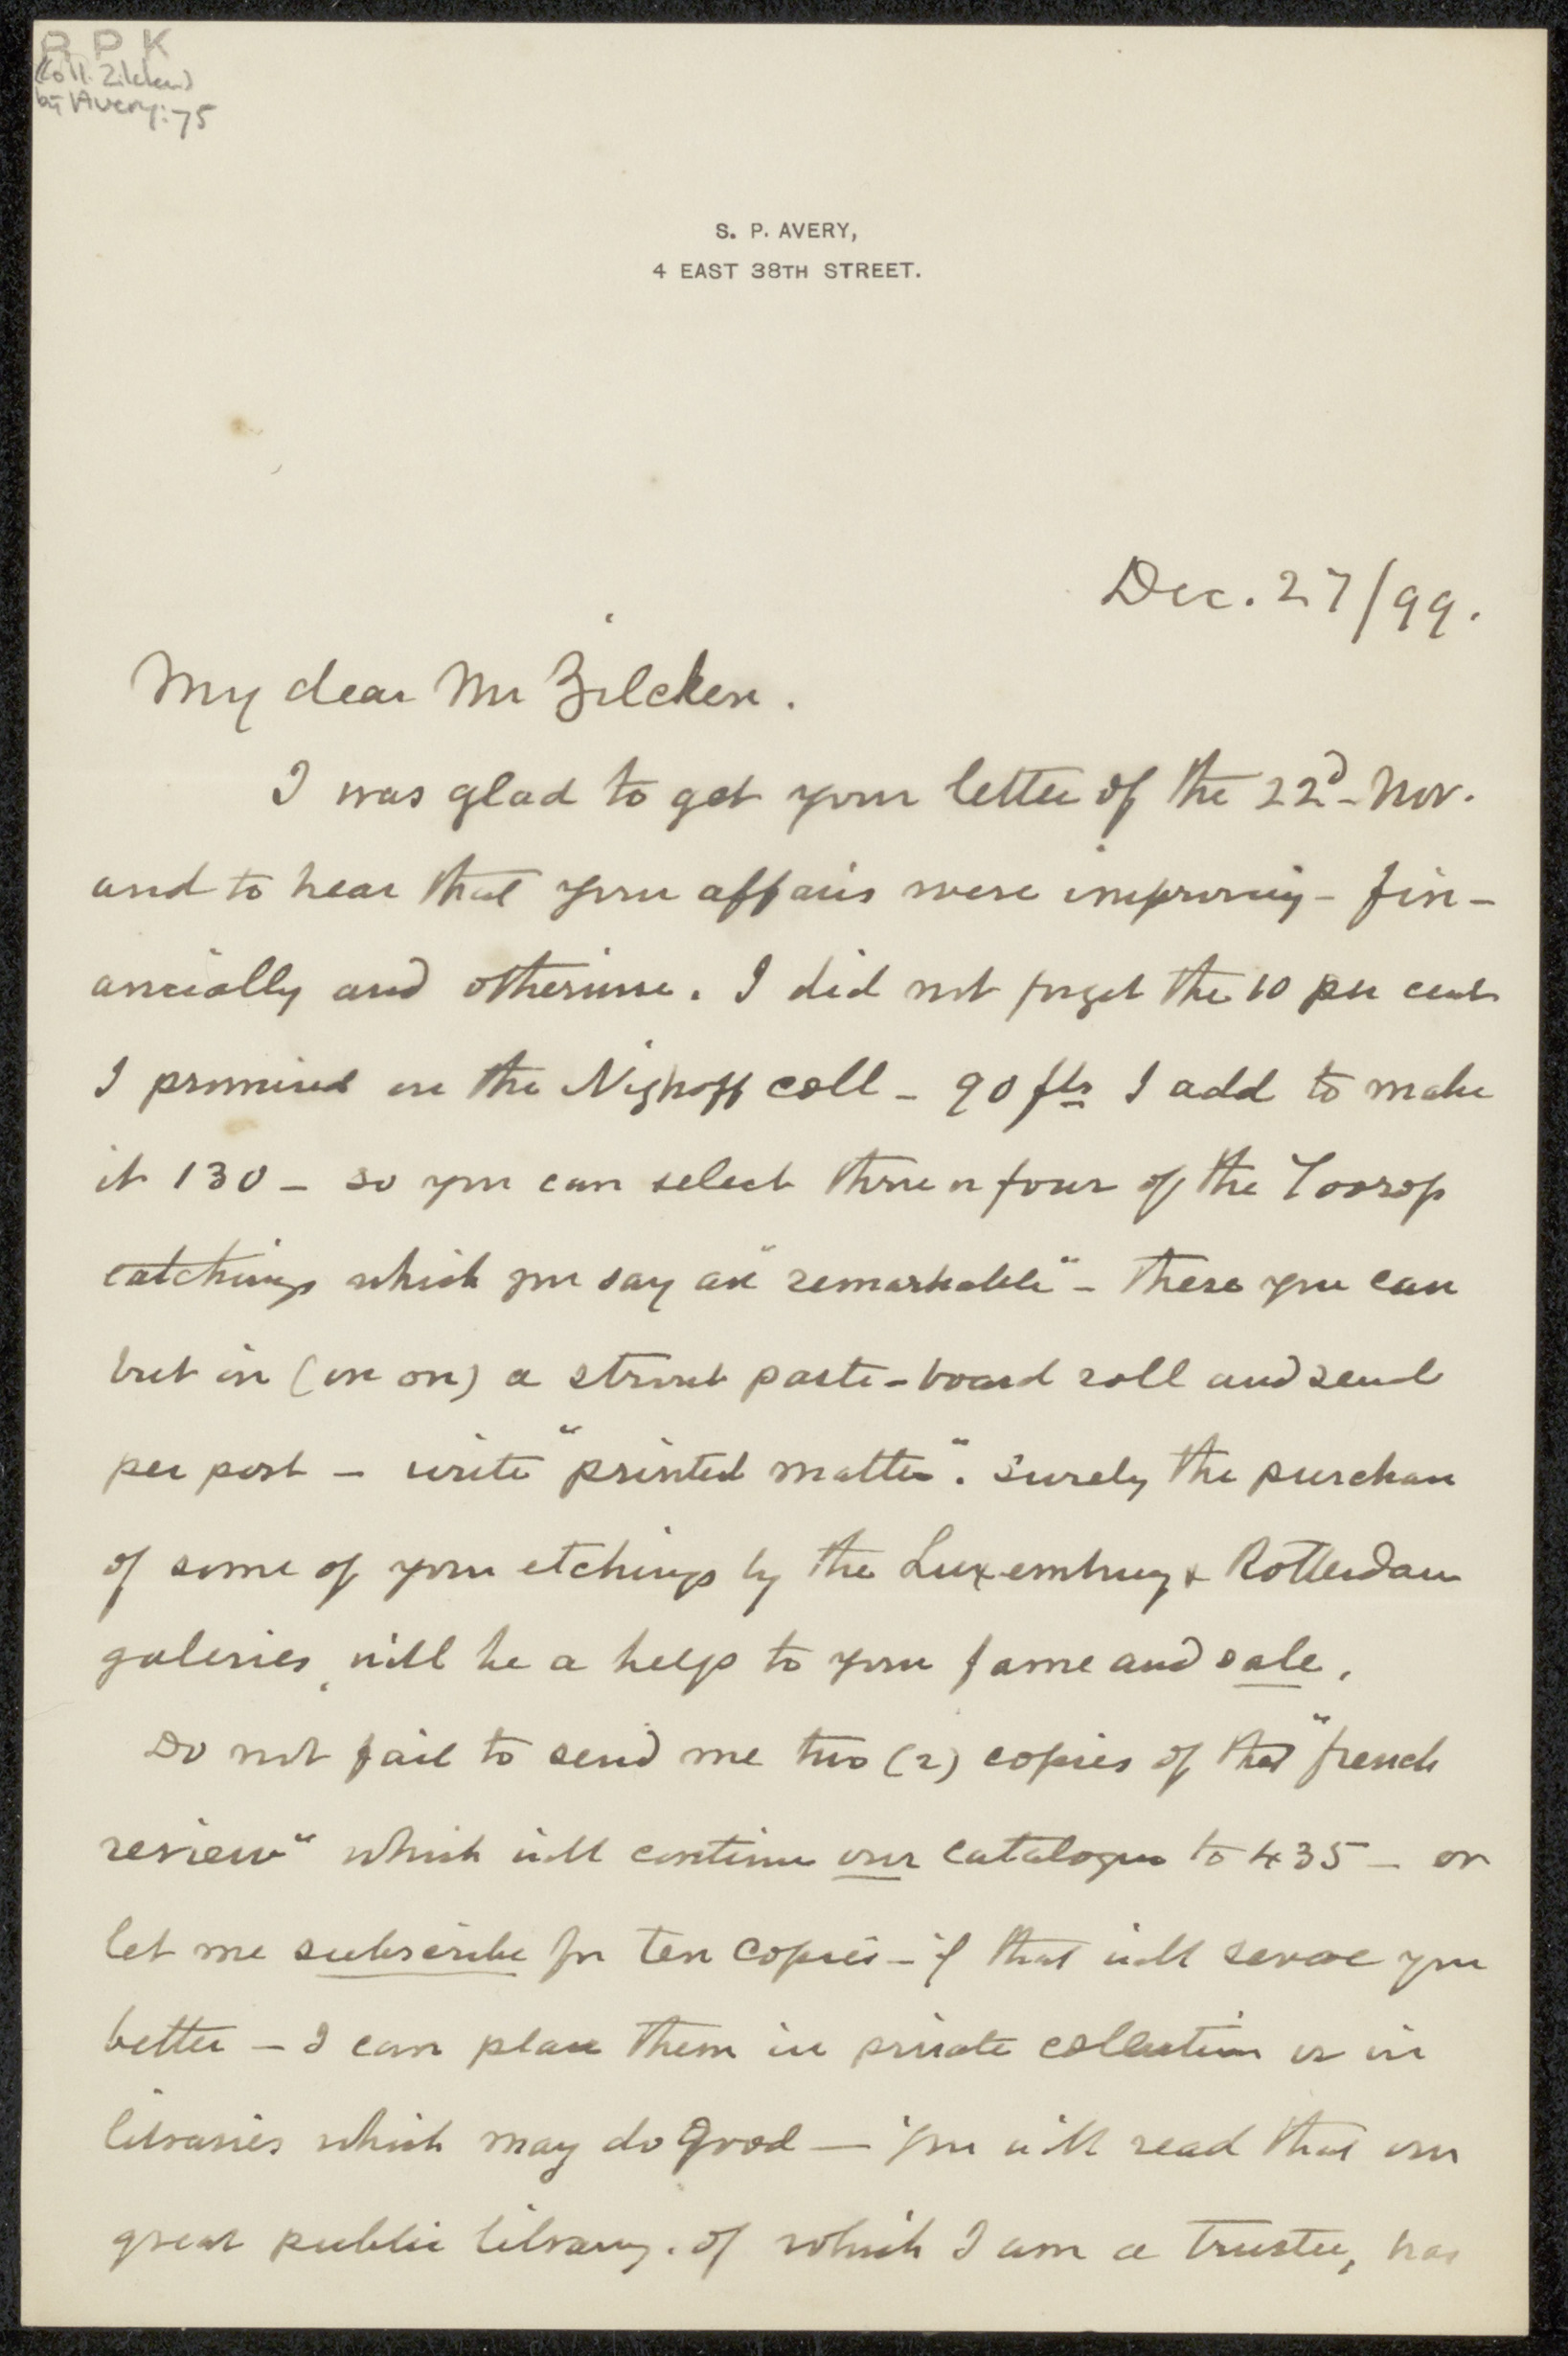 R P K
(Coll. Zilcken)
bij Avery: 75
S. P. AVERY,
4 EAST 38TH STREET.
Dec. 27/99.
My dear Mr Zilcken.
I was glad to get your letter of the 22d - Nov.
and to hear that your affairs were improving - fin-
ancially and otherwise. I did not forget the 10 per cent
I promised on the Nijhoff coll - 90 fls I add to make
it 130 - so you can select three or four of the Toorop
eatchings which you say are "remarkable" - these you can
but in (or on) a strout paste-board roll and send
per post - write "printed matter". Surely the purchase
of some of your etchings by the Luxemburg & Rotterdam
galeries, will be a help to your fame and sale.
Do not fail to send me two (2) copies of that "french
review" which will continue our catalogue to 435 - or
let me subscribe for ten copies - if that will serve you
better - I can place them in private collection or in
libraries which may do good - You will read that our
great public library. of which I am a trustee, has